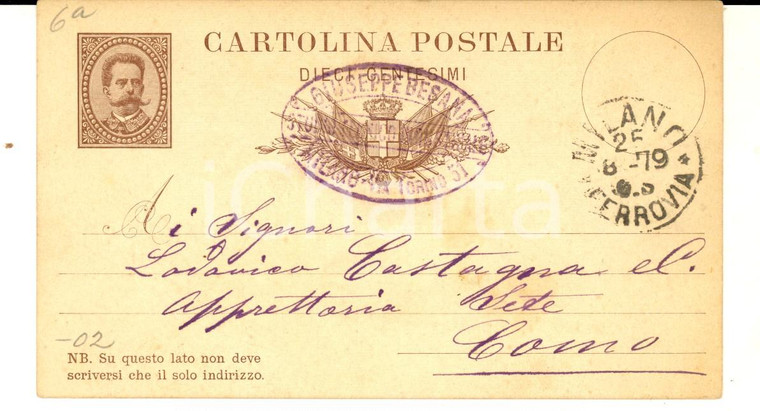 6a
CARTOLINA POSTALE
DIECI CENTESIMI
GIUSEPPE BESANA
MILANO VIA TORINO 51
MILANO
25
8-79
FERROVIA
iCharta
Ai Signori
Lodovico Castagna e C.
Apprettoria Sete
Como
-02
NB. Su questo lato non deve
scriversi che il solo indirizzo.